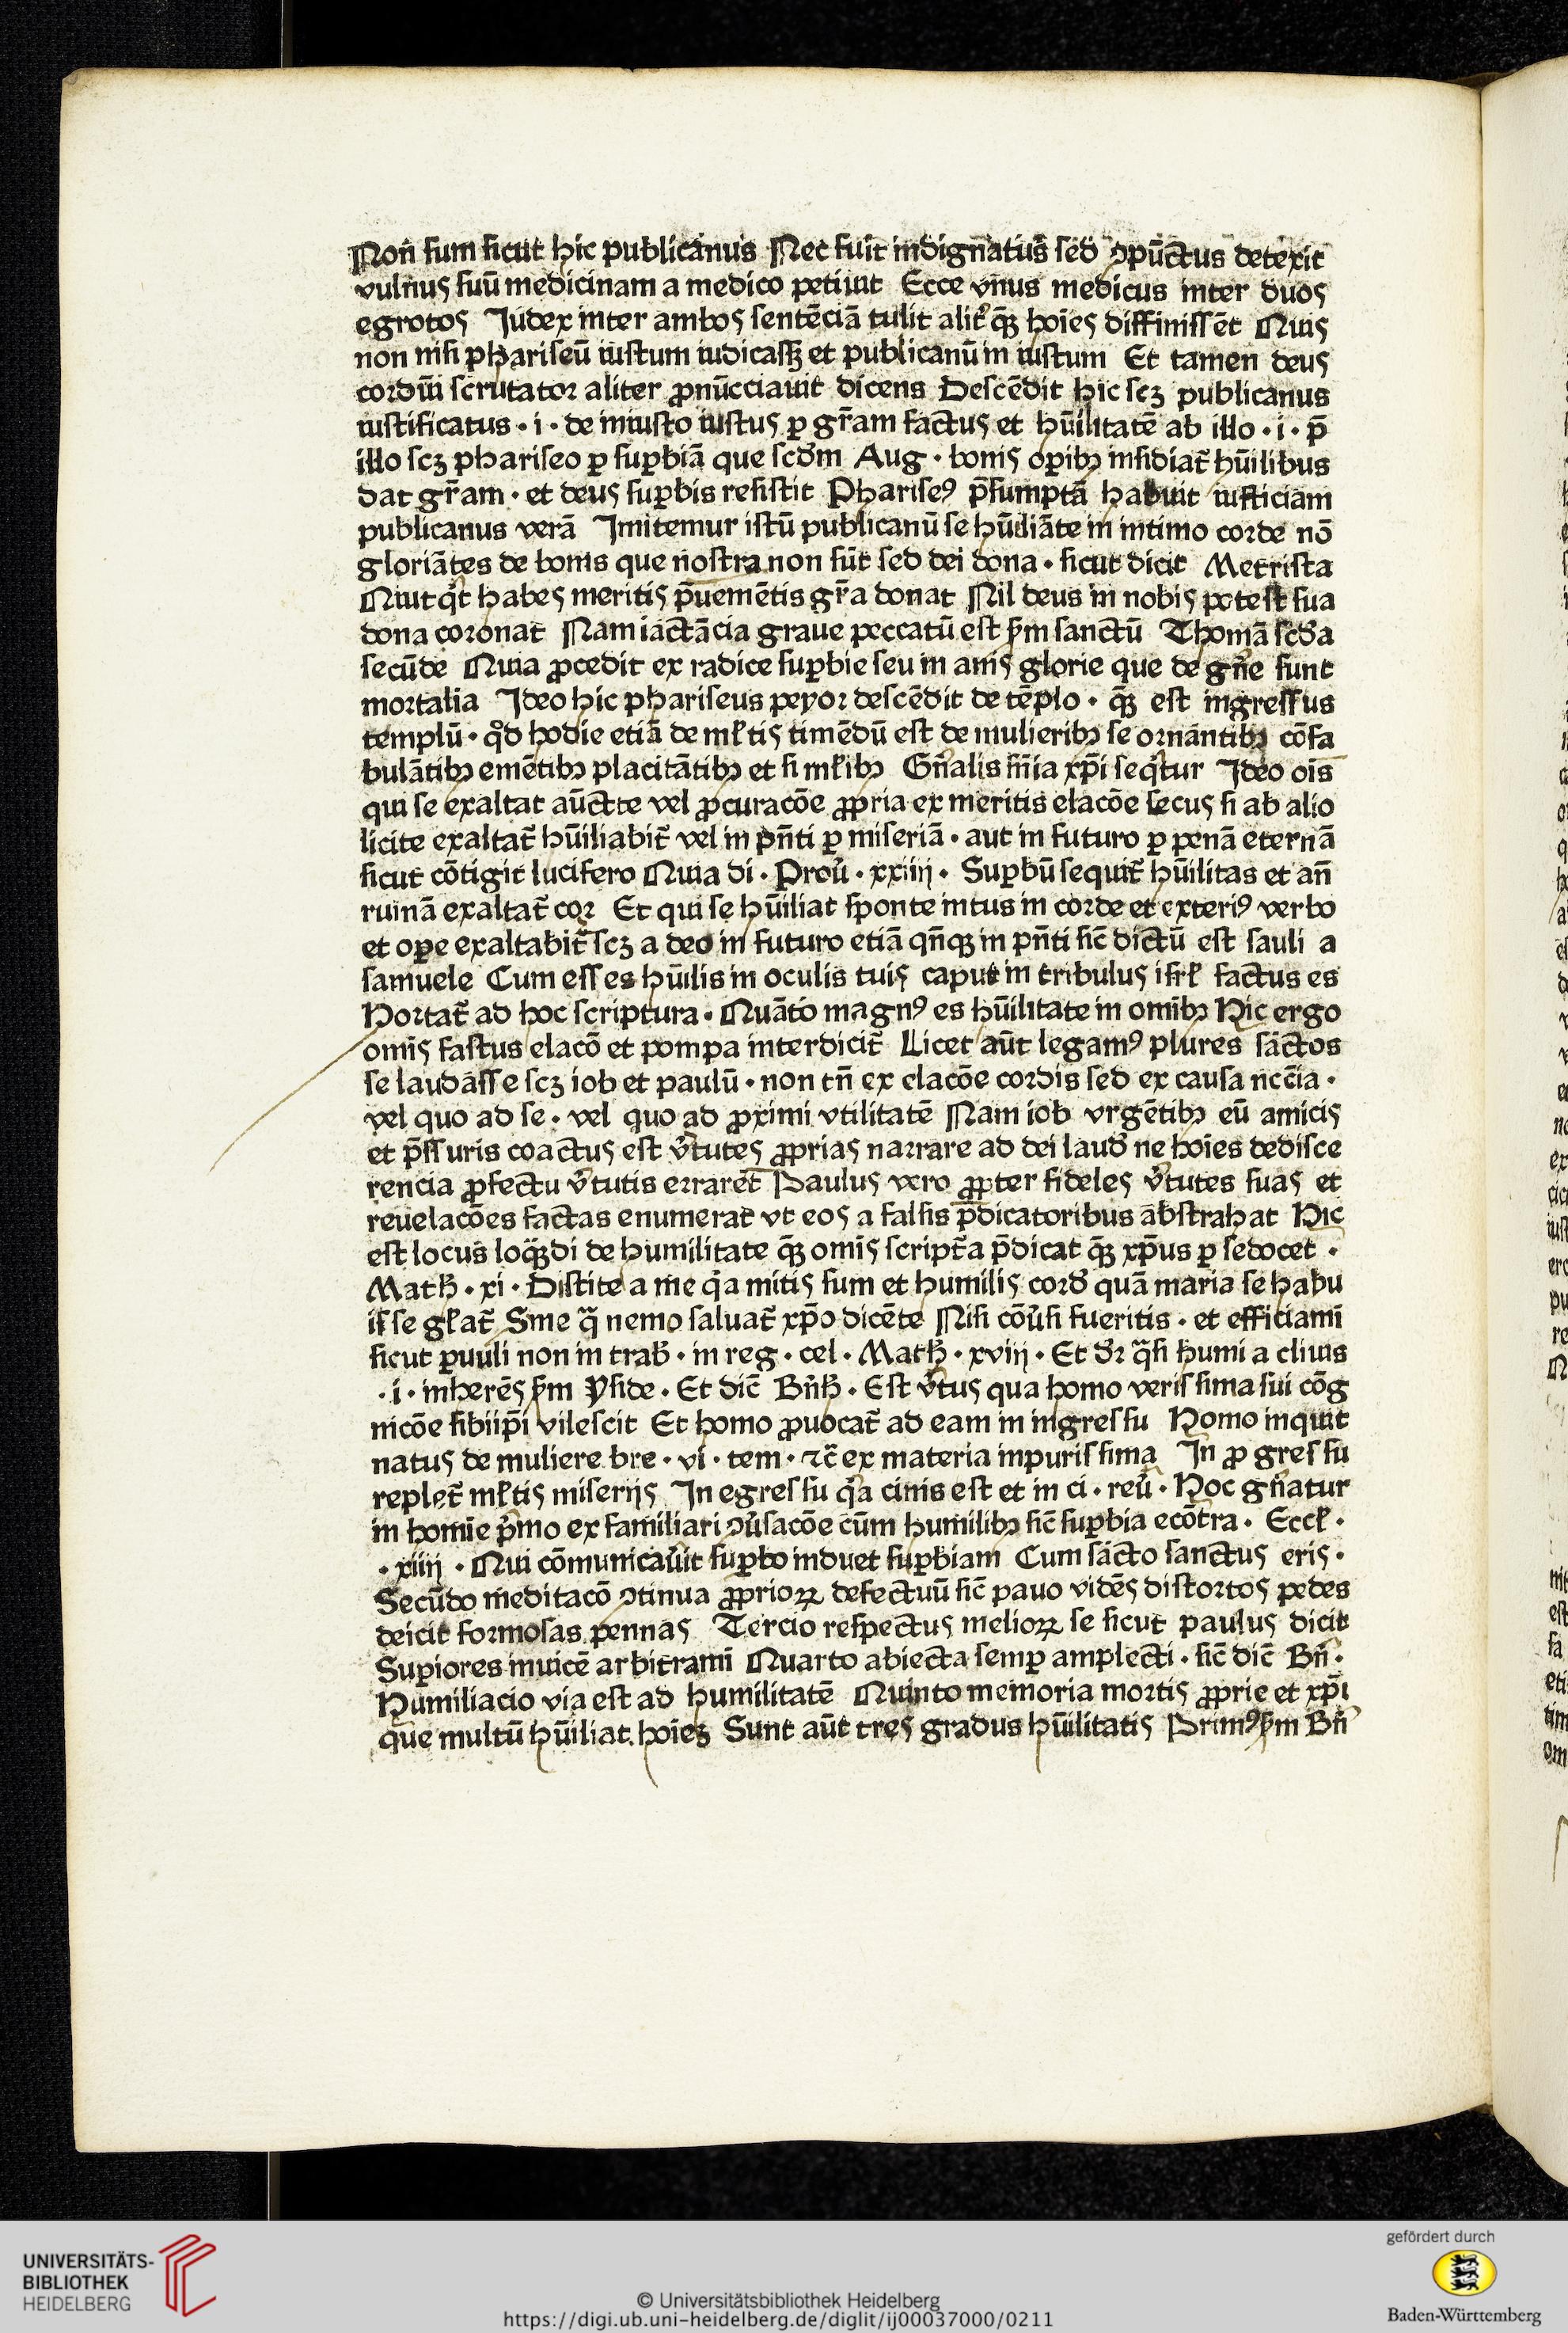 Non sum sicut hic publicanus Nec fuit indignatus sed ↄpūctus detexit
vulnus suū medicinam a medico petiuit Ecce vnus medicus inter duos
egrotos Iudex inter ambos sentēciā tulit alit̄ qȝ hoīes diffinissēt Quis
non nisi phariseū iustum iudicassȝ et publicanū in iustum Et tamen deus
cordiū scrutator aliter ꝓnūcciauit dicens Descēdit hic scȝ publicanus
iustificatus · i · de iniusto iustus ꝑ gr̄am factus et hūilitatē ab illo · i · p̄
illo scȝ phariseo ꝑ suꝑbiā que scd̄m Aug · bonis oꝑibꝫ insidiat̄ hūilibus
dat gr̄am · et deus suꝑbis resistit Phariseꝰ p̄sumptā habuit iusticiam
publicanus verā Imitemur istū publicanū se hūiliāte in intimo corde nō
gloriātes de bonis que nostra non sūt sed dei dona · sicut dicit Metrista
Quitqͥt habes meritis p̄ueniētis gr̄a donat Nil deus in nobis potest sua
dona coronat Nam iactācia graue peccatū est ẜm sanctū Thomā scd̄a
secūde Quia ꝓcedit ex radice suꝑbie seu in anis glorie que de gn̄e sunt
mortalia Ideo hic phariseus peyor descēdit de tēplo · qȝ est ingressus
templū · qͦd hodie etiā de ml̄tis timēdū est de mulieribꝫ se ornāntibꝫ cōfa
bulātibꝫ emētibꝫ placitātibꝫ et si ml̄ibꝫ Gn̄alis sn̄ia xp̄i seqͥtur Ideo oīs
qui se exaltat aūctte vel ꝓcuracōe ꝓpria ex meritis elacōe secus si ab alio
licite exaltat̄ hūiliabit̄ vel in pn̄ti ꝑ miseriā · aut in futuro ꝑ penā eternā
sicut cōtigit lucifero Quia di · Prou̓ · xxiiij · Suꝑbū sequit̄ hūilitas et an̄
ruinā exaltat̄ cor Et qui se hūiliat sponte intus in corde et exteriꝰ verbo
et oꝑe exaltabit̄ scȝ a deo in futuro etiā qn̄qȝ in pn̄ti sic̄ dictū est sauli a
samuele Cum esses hūilis in oculis tuis caput in tribulus isrl̄ factus es
Hortat̄ ad hoc scriptura · Quāto magnꝰ es hūilitate in omībꝫ Hic ergo
omīs fastus elacō et pompa interdicit̄ Licet aūt legamꝰ plures sāctos
se laudāsse scȝ iob et paulū · non tn̄ ex elacōe cordis sed ex causa ncc̄ia ·
vel quo ad se · vel quo ad ꝓximi vtilitatē Nam iob vrgētibꝫ eū amicis
et p̄ssuris coactus est v̓tutes ꝓprias narrare ad dei laud̄ ne hoīes dedisce
rencia ꝓfectu v̓tutis errarēt Paulus vero ꝓpter fideles v̓tutes suas et
reuelacōes factas enumerat vt eos a falsis p̄dicatoribus abstrahat Hic
est locus loqȝdi de humilitate qȝ omīs script̄a p̄dicat qȝ xp̄us ꝑ se docet ·
Math̄ · xi · Distite a me qͥa mitis sum et humilis cord̄ quā maria se habu
isse gl̄at̄ Sine qͣ nemo saluat̄ xp̄o dicēte Nisi cōu̓si fueritis · et efficiamī
sicut ꝑuuli non in trab̄ · in reg · cel · Math̄ · xviij · Et dr̄ qͣsi humi a cliuis
· i · inherēs ẜm Yside · Et dic̄ Bn̄h̄ · Est v̓tus qua homo verissima sui cōg
nicōe sibiip̄i vilescit Et homo ꝓuocat̄ ad eam in ingressu Homo inquit
natus de muliere bre · vi · tem · ⁊c̄ ex materia inpurissima In ꝓ gressu
replet̄ ml̄tis miserijs In egressu qͥa cinis est et in ci · reu̓ · Hoc gn̄atur
in homīe pͥmo ex familiari ↄu̓sacōe cūm humilibꝫ sic̄ suꝑbia ecōtra · Eccl̄ ·
· xiiij · Qui cōmunicau̓it suꝑbo induet suꝑbiam Cum sācto sanctus eris ·
Secūdo meditacō ↄtinua ꝓprioꝝ defectuū sic̄ pauo vidēs distortos pedes
deicit formosas pennas Tercio respectus melioꝝ se sicut paulus dicit
Suꝑiores inuicē arbitramī Quarto abiecta semꝑ amplecti · sic̄ dic̄ Bn̄ ·
Humiliacio via est ad humilitatē Quinto memoria mortis ꝓprie et xp̄i
que multū hūiliat hoīeȝ Sunt aūt tres gradus hūilitatis Primꝰ ẜm Bn̄
UNIVERSITÄTS-
BIBLIOTHEK
HEIDELBERG
© Universitätsbibliothek Heidelberg
https://digi.ub.uni-heidelberg.de/diglit/ij00037000/0211
gefördert durch
Baden-Württemberg